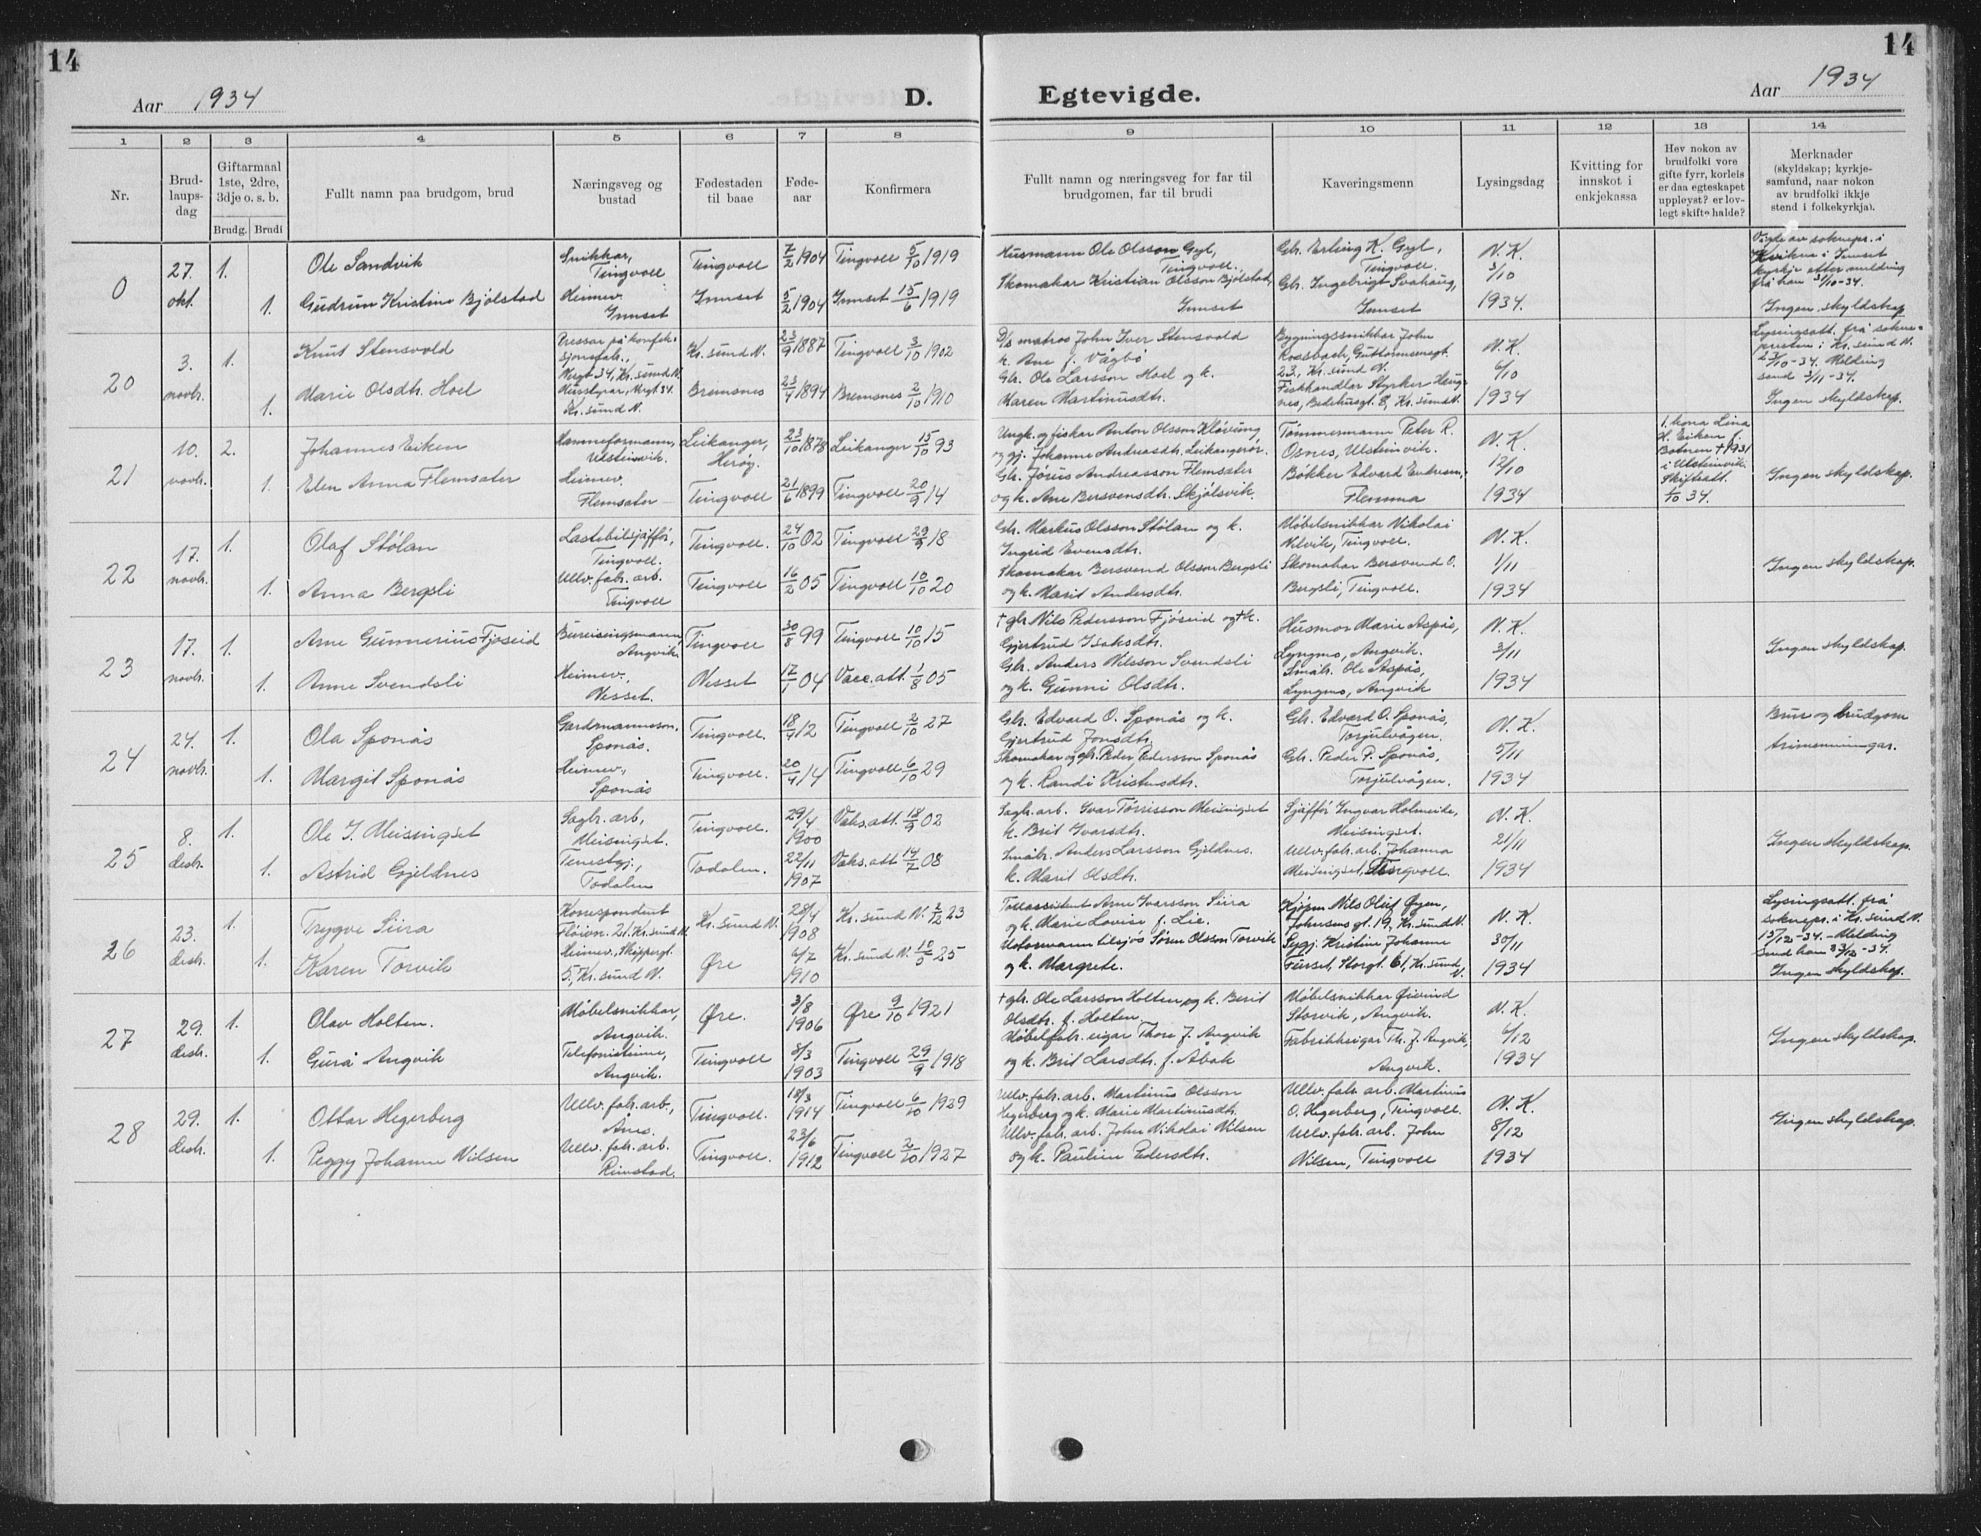 14
14
Aar 1934
D.
Egtevigde.
Aar 1934
1 2 3 4 5 6 7 8
9 10 11 12 13 14
Nr.
Brud-
laups-
dag
Giftarmaal
1ste, 2dre,
3dje o. s. b.
Brudg. Brudi
Fullt namn paa brudgom, brud
Næringsveg og
bustad
Fødestaden
til baae
Føde-
aar
Konfirmera
Fullt namn og næringsveg for far til
brudgomen, far til brudi
Kaveringsmenn
Lysingsdag
Kvitting for
innskot i
enkjekassa
Hev nokon av
brudfolki vore
gifte fyrr, korleis
er daa egteskapet
uppleyst? er lov-
legt skifte halde?
Merknader
(skyldskap; kyrkje-
samfund, naar nokon
av brudfolki ikkje
stend i folkekyrkja).
0
27.
okt.
1.
Ole Sandvik
Snikkar,
Tingvoll
Tingvoll
7/2 1904
Tingvoll 5/10 1919
1.
Gudrun Kristine Bjølstad
Heimev.
Innset
Innset
5/2 1904
Innset 15/6 1919
Husmann Ole Olsson Gyl,
Tingvoll.
Skomakar Kristian Olsson Bjølstad,
Innset
Gbr. Erling K. Gyl,
Tingvoll.
Gbr. Ingebrigt Svahaug,
Innset
N. K.
3/10
1934.
Vigde av soknepr. i
Kvikne i Innset
kyrkje etter melding
frå han 31/10-34.
Ingen skyldskap
20
3.
novbr.
1.
Knut Stensvold
Pressar på konfek-
sjonsfabr.,
Vkgt 34, Kr. sund N.
Kr. sund N.
23/9 1887
Tingvoll 3/10 1902
1.
Marie Olsdtr. Hoel
Husstyrar, Vkgt 34.
Kr. sund N.
Bremsnes
23/4 1894
Bremsnes 2/10 1910
D/s matros John Iver Stensvold
k. Ane f. Vågbø
Gbr. Ole Larsson Hoel og k.
Maren Martinusdtr.
Bygningssnikkar John
Rossbach, Guttormsensgt.
23, Kr. sund N.
Fiskhandlar Styrker Haug-
nes, Bedehusgt. 8, Kr. sund N.
N. K.
6/10
1934
Lysingsatt. frå sokne-
presten i Kr. sund N.
23/10-34. Melding
send 3/11-34.
Ingen skyldskap.
21
10.
novbr.
2.
Johannes Eiken
Hamneformann,
Ulsteinvik.
Leikanger,
Herøy.
23/10 1878
Leikanger 15/10 93
1.
Elen Anna Flemsæter
Heimev.
Flemsæter
Tingvoll
21/6 1899
Tingvoll 20/9 14
Ungk. og fiskar Anton Olsson Kløvning
og gj. Johanne Andreasdtr. Leikangerør.
Gbr. Jørus Andreasson Flemsæter
og k. Ane Bersvensdtr. Skjølsvik.
Tømmermann Peter R.
Osnes, Ulsteinvik.
Bøkker Edvard Endresen,
Flemma
N. K.
12/10
1934
1. kona Lina
H. Eiken f.
Botnen † 1931
i Ulsteinvik.
Skiftsatt.
1/10 34.
Ingen skyldskap.
22
17.
novbr.
1.
Olaf Stølan
Lastebilsjåfför,
Tingvoll.
Tingvoll.
24/10 02
Tingvoll 29/9 18
1.
Anna Bergsli
Ullv. fabr. arb.
Tingvoll
Tingvoll
16/2 05
Tingvoll 10/10 20
Gbr. Markus Olsson Stølan og k.
Ingrid Evensdtr.
Skomakar Bersvend Olsson Bergsli
og k. Marit Andersdtr.
Møbelsnikkar Nikolai
Vilvik, Tingvoll.
Skomakar Bersvend O.
Bergsli, Tingvoll.
N. K.
1/11
1934
Ingen skyldskap.
23
17.
novbr.
1.
Arne Gunnerius Fjøseid
Bureisingsmann
Angvik.
Tingvoll
30/8 99
Tingvoll 10/10 15
1.
Anne Svendsli
Heimev.,
Nesset.
Nesset
17/1 04
Vacc. att. 1/8 05
† gbr. Nils Pedersson Fjøseid og † k.
Gjertrud Isaksdtr.
Gbr. Anders Nilsson Svendsli
og k. Gunni Olsdtr.
Husmor Marie Aspås,
Lyngmo, Angvik.
Småbr. Ole Aspås,
Lyngmo, Angvik
N. K.
3/11
1934
Ingen skyldskap.
24
24.
novbr.
1.
Ola Sponås
Gardmannsson,
Sponås.
Tingvoll.
18/4 12
Tingvoll 2/10 27
1.
Margit Sponås
Heimev.,
Sponås
Tingvoll.
20/4 14
Tingvoll 6/10 29
Gbr. Edvard O. Sponås og k.
Gjertrud Jonsdtr.
Skomakar og gbr. Peder Pedersson Sponås
og k. Randi Kristensdtr.
Gbr. Edvard O. Sponås,
Torjulvågen.
Gbr. Peder P. Sponås,
Torjulvågen.
N. K.
5/11
1934
Brur og brudgom
trimenningar.
25
8.
desbr.
1.
Ole I. Meisingset
Sagbr. arb,
Meisingset.
Tingvoll.
29/4
1900
Vaks. att. 18/9 02
1.
Astrid Gjeldnes
Tenestgj.,
Todalen
Todalen.
22/11
1907
Vaks. att 14/7 08
Sagbr. arb. Ivar Torrisson Meisingset
k. Brit Ivarsdtr.
Småbr. Anders Larsson Gjeldnes.
k. Marit Olsdtr.
Sjåfför Ingvar Holmeide,
Meisingset.
Ullv. fabr. arb. Johanna
Meisingset, Tingvoll.
N. K.
21/11
1934
Ingen skyldskap.
26
23.
desbr.
1.
Trygve Siira
Korrespondent
Fløivn. 21. Kr. sund N.
Kr. sund N.
28/4
1908
Kr. sund N. 2/12 23
1.
Karen Torvik
Heimev., Skippergt.
5, Kr. sund N.
Øre
6/7
1910
Kr. sund N. 10/5 25
Tollassistent Arne Ivarsson Siira
og k. Marie Lovise f. Lie.
Søren Olsson Torvik
og k. Margrete.
Kjøpm. Nils Oluf Øyen,
Johnsens gt. 19, Kr. sund N.
Sygj. Kristine Johanne
Furset, Storgt. 61, Kr. sund
N.
N. K.
30/11
1934
Lysingsatt. frå
soknepr. i Kr. sund N.
15/12-34. - Melding
send han 23/12-34.
Ingen skyldskap.
27
29.
desbr.
1.
Olav Holten.
Møbelsnikkar,
Angvik.
Øre.
3/8
1906
Øre 9/10 1921
1.
Gurå Angvik
Telefonistinne,
Angvik.
Tingvoll
8/3
1903
Tingvoll 29/9 1918
† gbr. Ole Larsson Holten og k. Berit
Olsdtr. f. Holten.
Møbelfabr. eigar Thore J. Angvik
og k. Brit Larsdtr. f. Åbak
Møbelsnikkar Øivind
Storvik, Angvik.
Fabrikkeigar Th. J. Angvik,
Angvik.
N. K.
6/12
1934
Ingen skyldskap.
28
29.
desbr.
1.
Ottar Hegerberg
Ullv. fabr. arb.,
Tingvoll.
18/3
1914
Tingvoll 6/10 1929
1.
Peggy Johanne Nilsen
Ullv. fabr. arb.
Rimstad.
Tingvoll.
23/6
1912
Tingvoll 2/10 1927
Ullv. fabr. arb. Martinus Olsson
Hegerberg og k. Marie Martinusdtr.
Ullv. fabr. arb. John Nikolai Nilsen
og k. Pauline Pedersdtr.
Ullv. fabr. arb. Martinus
O. Hegerberg, Tingvoll.
Ullv. fabr. arb. John
Nilsen, Tingvoll
N. K.
8/12
1934
Ingen skyldskap.